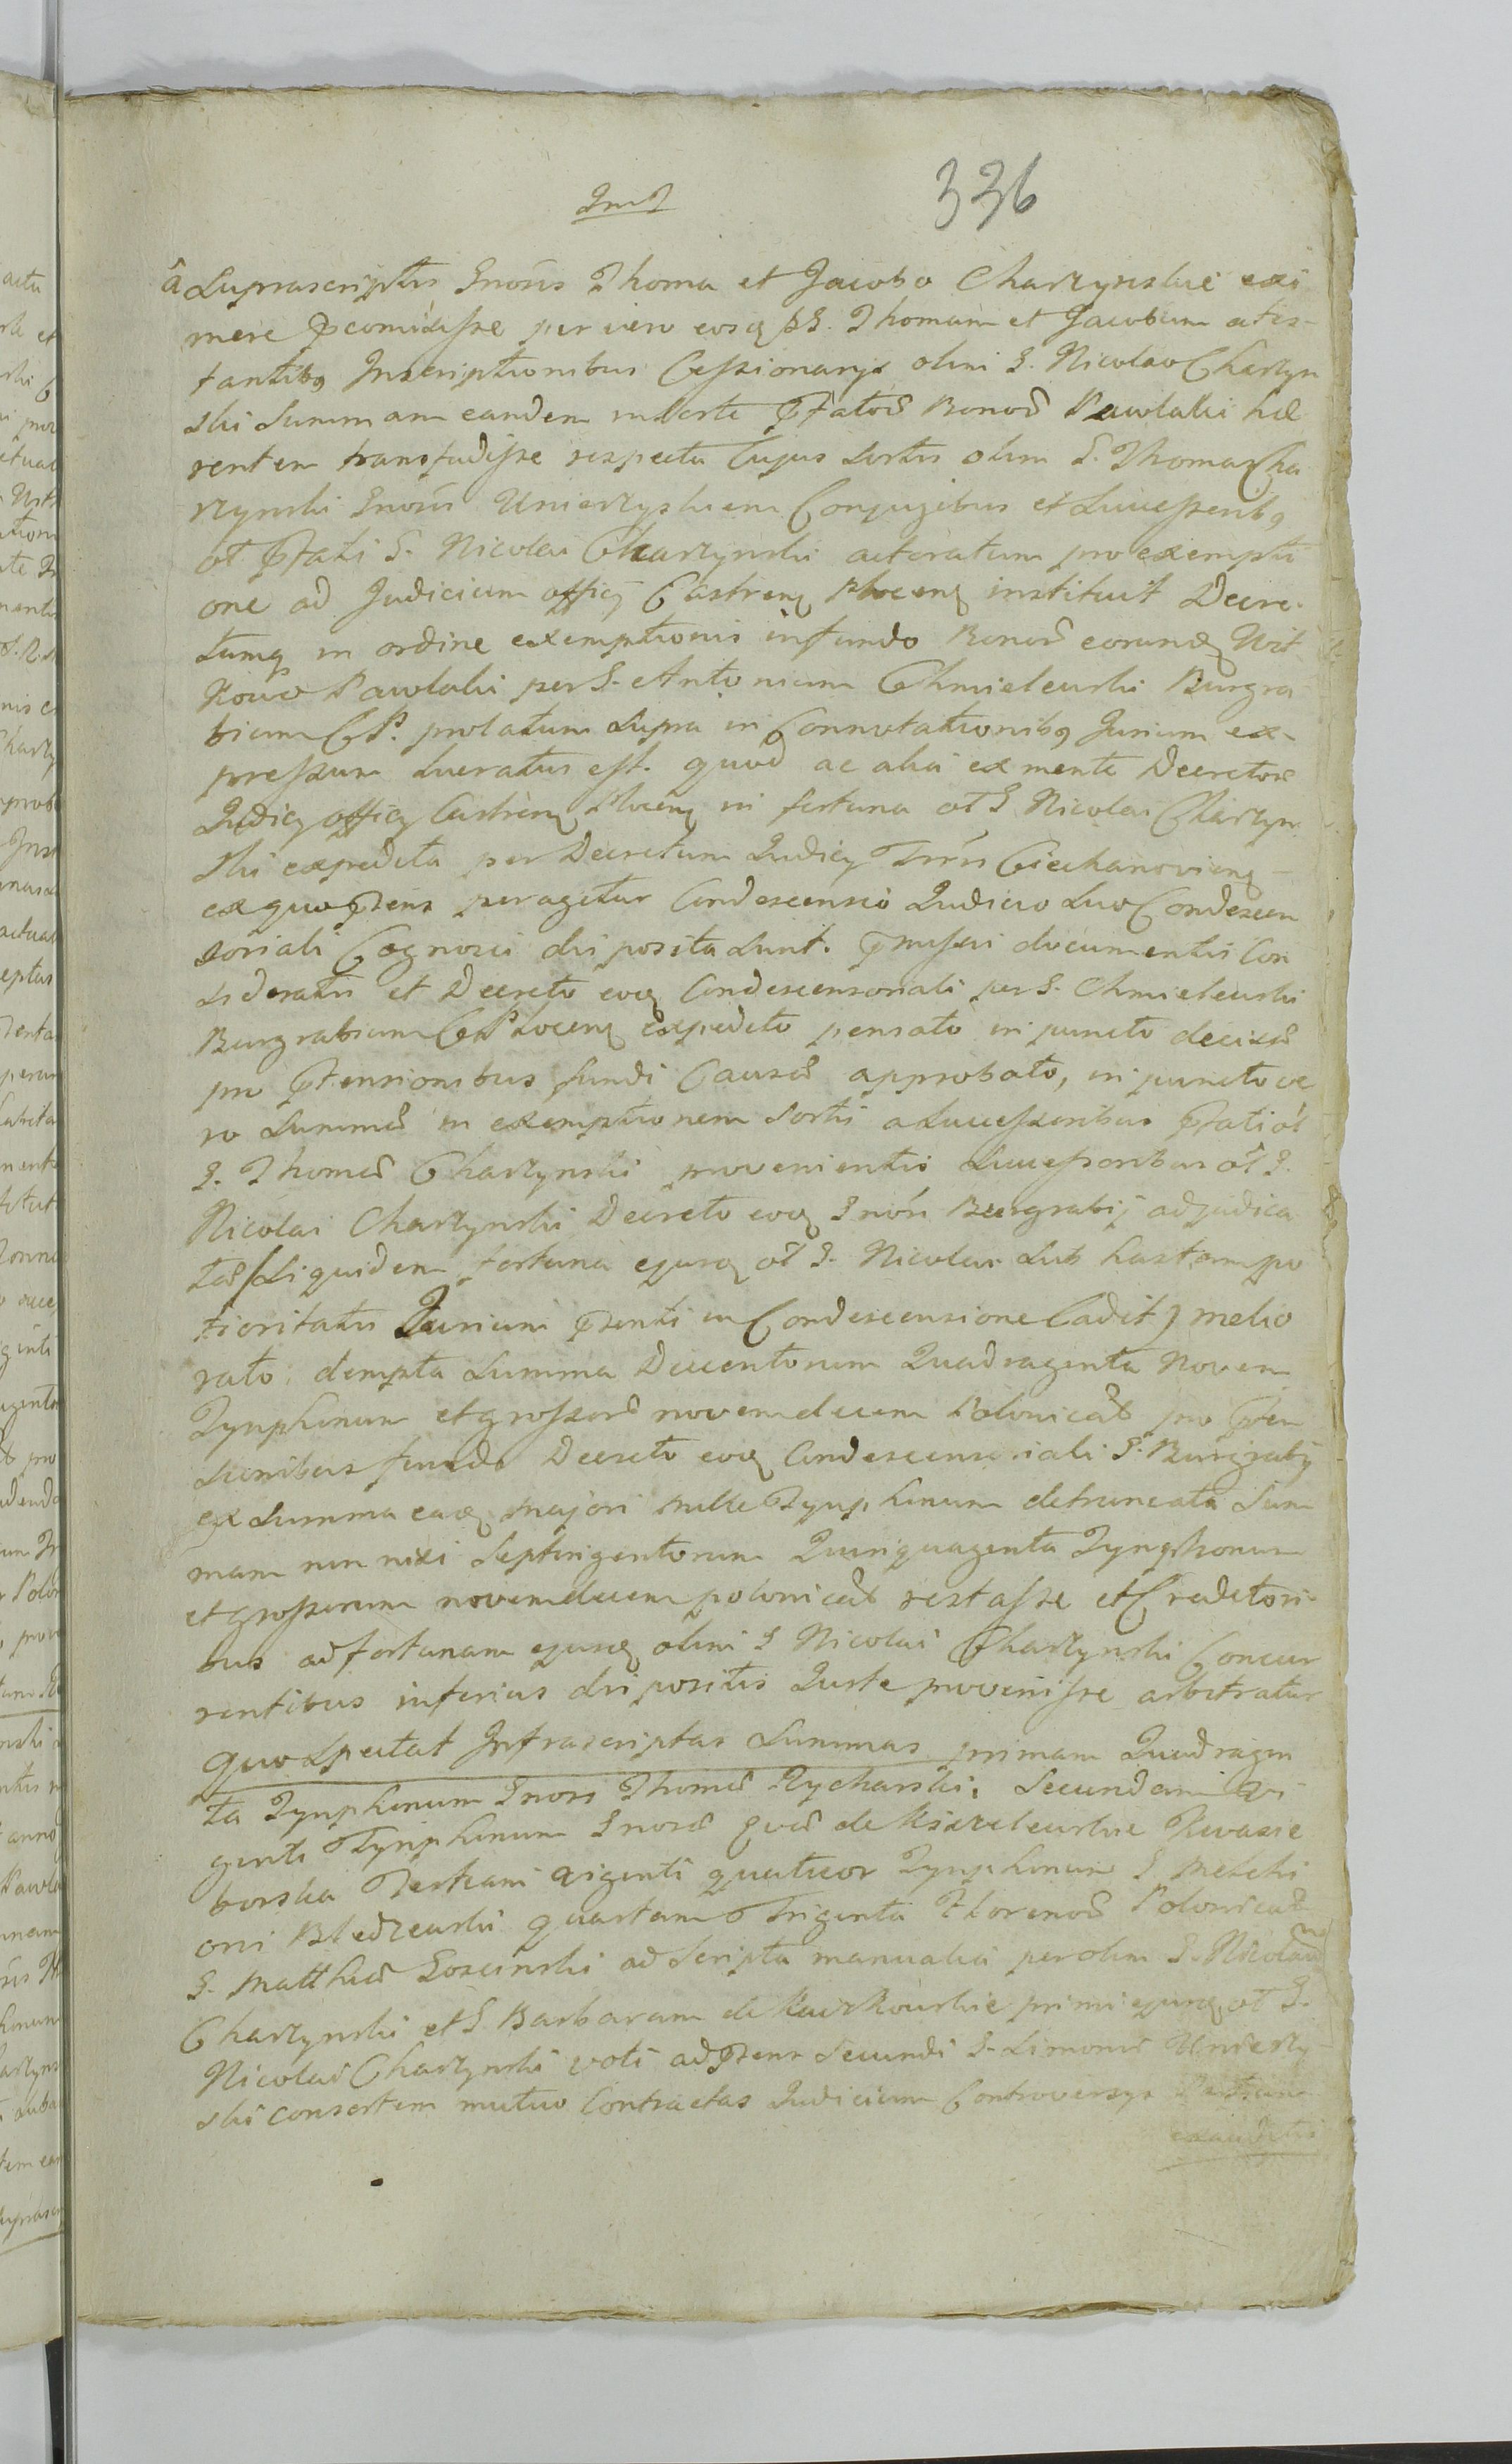 336
â Suprascriptis Gnosis Thoma et Jacobo Charzynskie exi
mere p̱comisisse per vero eosq GG. Thomam et Jacobum attes-
tantibq Inscriptionibus Cessionarijs olim G. Nicolao Charzyn
ski Summam eandem in sorte p̱fatoR Bonor Pawlaki hæ
rentem transfudisse respectu Cujus Sortis olim G. Thomas Cha
rzynski Gnosis Unierzyskiem Conjugibus et Successoribq
ol p̱fati G. Nicolai Charzynski actoratum pro exempti
one ad Judicium officij Castrenq Plocenq instituit Decre-
tumq in ordine exemptionis in fundo Bonor eorundq Wit
kowo Pawlaki per G. Antonium Chmielewski Burgra
bium C. P. prolatum Supra in Connotationibq Jurium ex-
pressum lucratus est. quod ac alia ex mente Decretor
Judicij officij Castrenq Plocenq in fortuna ol G Nicolai Charzyn
ski expedita per Decretum Judicij Trris Ciechanoviensq
ex quo p̱sens peragitur Condescensio Judicio Suo Condescen
soriali Cognosci disposita Sunt. p̱missis documentis Con
sideratis et Decreto eoq Condescensoriali per G. Chmielewski
Burgrabium C Plocenq expedito pensato in puncto decisæ
pro p̱tensionibus fundi Causæ approbato, in puncto ve
ro Summæ in exemptionem Sortis a Successoribus p̱fati ol
G. Thomæ Charzynski provenientis Successoribus ol G.
Nicolai Charzynski Decreto eoq Gnosi Burgrabij adjudica
tæ / Siquidem fortuna ejusq ol G. Nicolai Sub hastam po
tioritatis Jurium p̱senti in Condescensione Cadit) melio
rato: dempta Summa Ducentorum Quadraginta Novem
Tynphonum et grossorum novemdecem Polonical pro p̱ten
sionibus fundo Decreto eoq Condescensoriali G. Burgrabij
ex Summa eaq majori mille Tynphonum detruncata Sum
mam non nisi Septingentorum Quinquaginta Tynphonum
et grossorum novemdecem polonical restasse et Creditori-
bus ad fortunam ejusq olim G Nicolai Charzynski Concur
rentibus inferius dispositis Juste provenisse arbitratur
quo Spectat Infrascriptas Summas primam Quadragin
ta Tynphonum Gnosi Thomæ Rycharski, Secundam Vi
ginti Tynphonum Gnosæ
borska Tertiam viginti quatuor Tynphonum G Melchi
ori Bledzewski quartam Triginta Florenor Polonical
G. Matthiæ Goscinski ad Scripta manualia per olim G. Nicolaum
Charzynski et G Barbaram de primi ejusq ol G.
Nicolai Charzynski voti ad p̱sens Secundi G. Simonis Unierzy-
ski consortem mutuo Contractas Judicium Controversijs Partium
exauditis